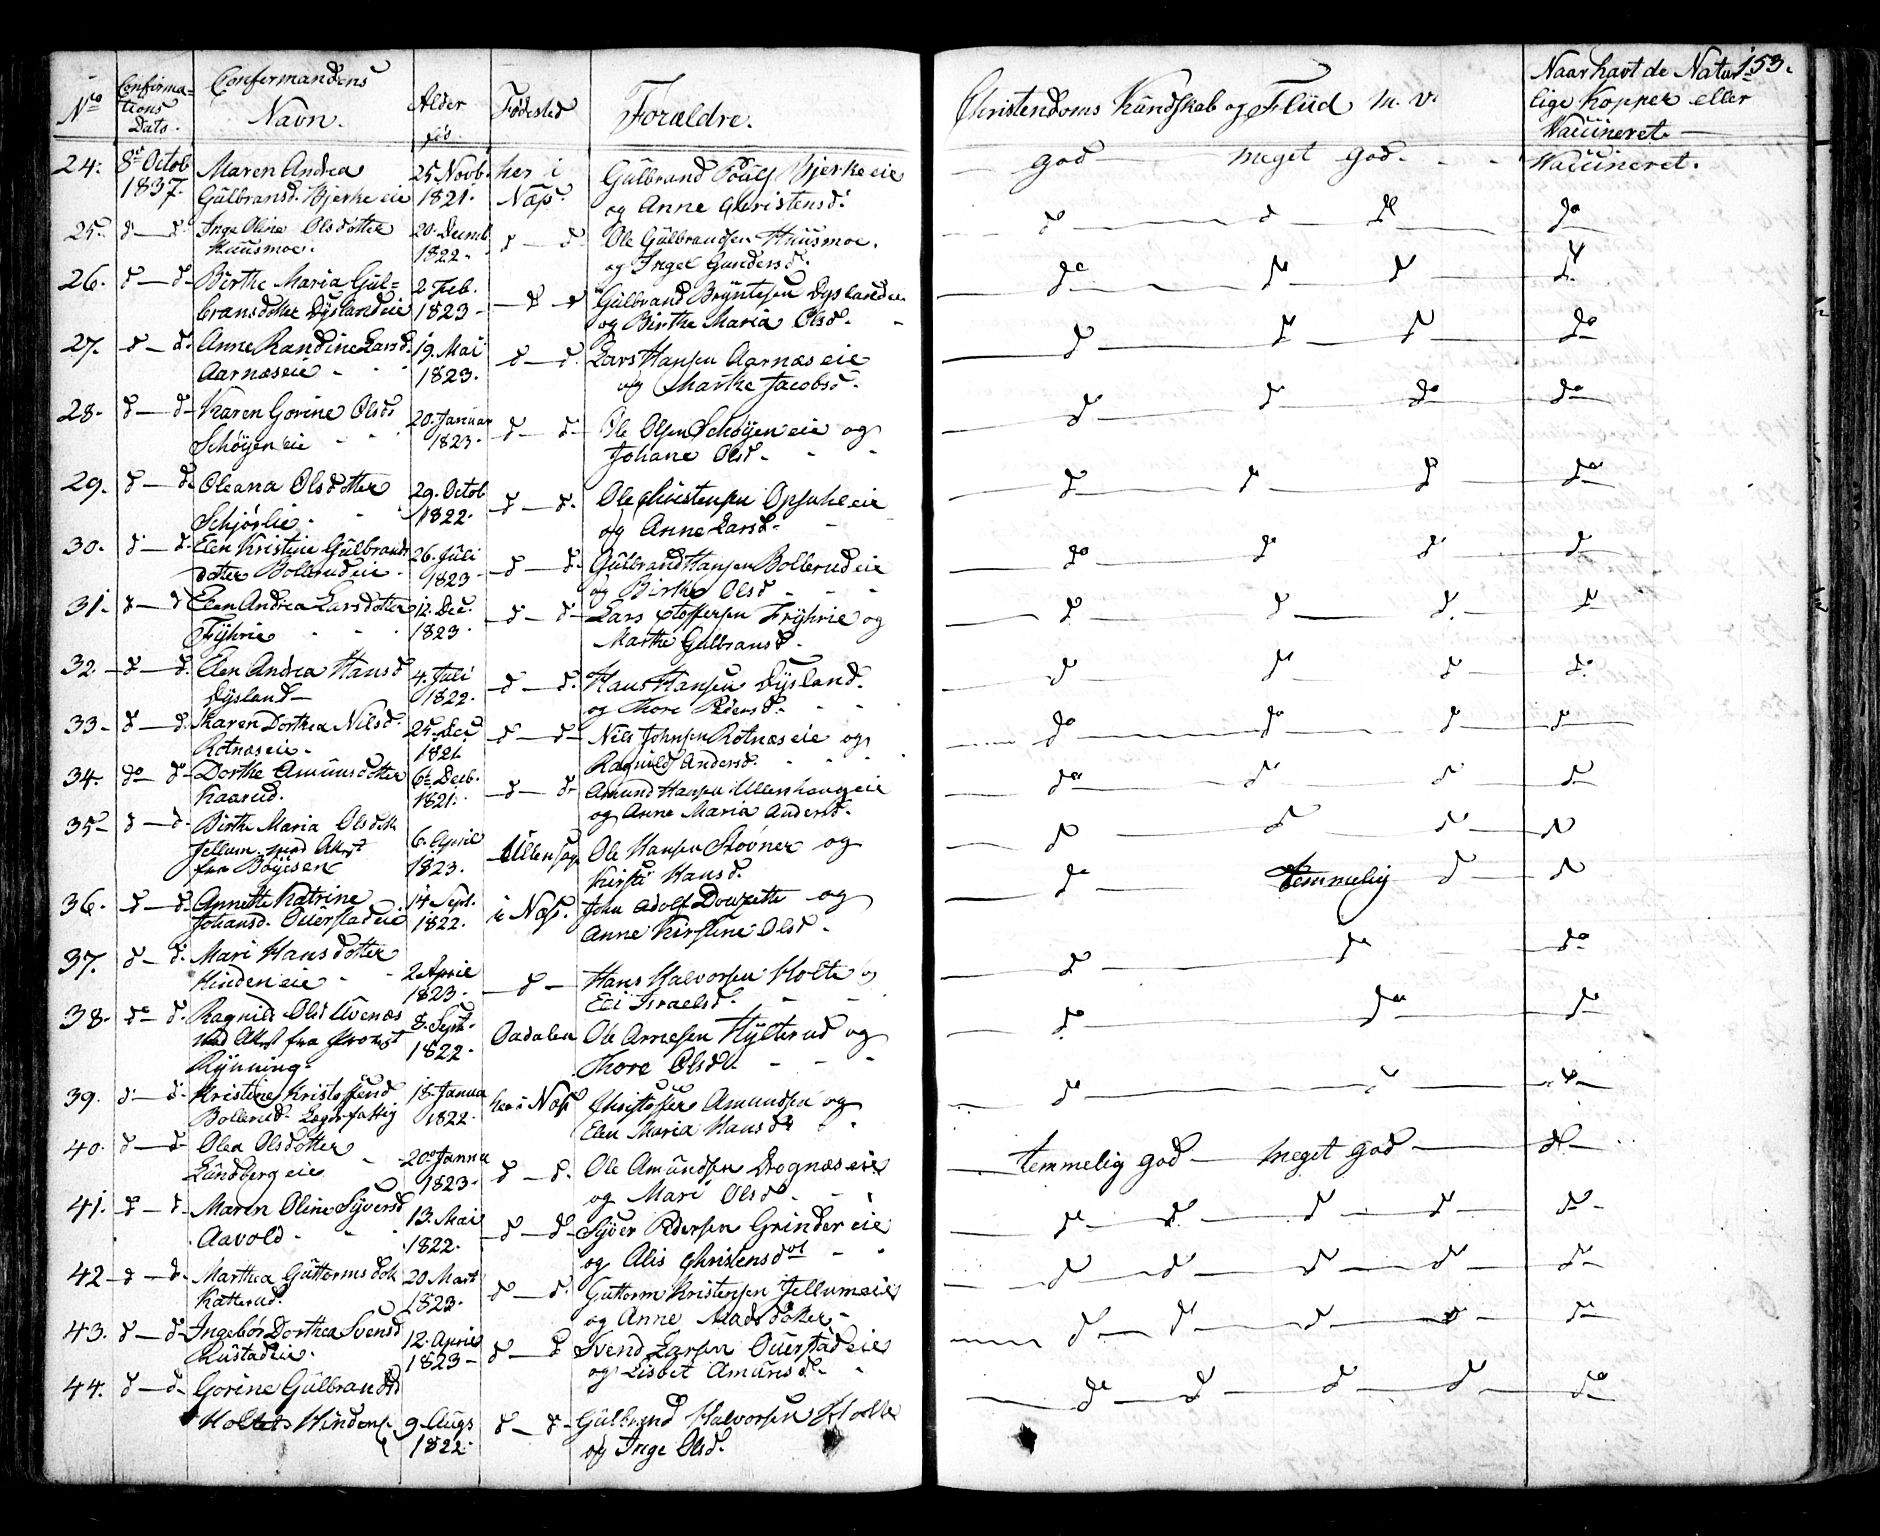 No
Confirmations Dato.
Confermandens Navn.
Alder
Fødested
Forældre.
Christendoms Kundskab og Fliid m. v.
Naar havt de Naturlige Kopper eller Vaccineret.
153.
24. 8de Octob 1837. Maren Andrea Gulbransd. Bjerke eie 25 Novb. 1821. her i Næs. Gulbrand Bjerke eie og Anne Christensd. god meget god. Vaccineret.
25. d — d. Inge Oline Olsdotter Huusmoe. 20 Decemb 1822. d — d Ole Gulbrandsen Huusmoe. og Ingel Gundersd. d d d do
26. d — d. Birthe Maria Gulbransdotter Dyslandeie 2 Feb. 1823 — d d Gulbrand Dyslandeie og Birthe Maria Olsd. do d d d
27. d — d. Anne Randine Larsd. Aarnæseie 19. Mai 1823. d — d. Lars Hansen Aarnæs eie og Marthe Jacobsd. d d d do
28. d — d. Karen Gorine Olsd Schøyen eie 20. Januar 1823. d — d. Ole Olsen Schøyen eie og Johane Olsd. d d do do
29. d — d. Oleana Olsdotter Schjørlie. 29. Octob 1822. d — d. Ole Christensen Opsahl eie og Anne Larsd. d d d do
30. d — d. Elen Kristine Gulbrands dotter Bollerud eie 26. Juli 1823 d — d. Gulbrand Hansen Bollerud eie og Birthe Olsd do d d d
31. d — d Elen Andrea Larsdotter Fryhrie 12. Dec. 1823. d — d Lars Stoffersen Fryhrie og Marthe Gulbransd. d d d. d
32. d — d. Elen Andrea Hansd Dysland 4. Juli 1822. d — d. Hans Hansen Dysland. og Thore Pedersd. d d d d.
33. d — d. Karen Dorthea Nilsd. Rotnæseie. 25. Dec 1821 d — d. Nils Johnsen Rotnæseie og Ragnild Andersd. do do d d
34. do d. Dorthe Amunsdotter Kaarud. 6te Decb. 1821. d — d. Amund Hansen Ullershaug eie og Anne Maria Andersd. do d d d
35. d — d. Birthe Maria Olsdott Jellum. med Attest fra Boyesen 6. April 1823. Ullensager Ole Hansen Støvner og Kirsti Hansd. d d d d
36. d — d. Annette Katrine Johansd. Ouerstadeie 14 Sept. 1822. i Næs. John Adolf og Anne Kirstine Olsd. d temmelig d d
37. d — d. Mari Hansdotter Hinden eie 2 April 1823. — d — Hans Halvorsen Holte og Eli Israelsd. d do do
38. do d. Ragnild Olsd med Attest fra Provst Rynning. 8. Sept. 1822. Oadalen Ole Arnesen Hylterud og Thore Olsd d do d
39. d — d. Kristine Kristoffersd Bollerud. 18. Janua 1822. her i Næs Christoffer Amundsen og Elen Maria Hansd d d d
40. d — d. Olea Olsdotter Lundberg eie 20 Janua 1823. d — d. Ole Amundsen Drognæs eie og Mari Olsd temmelig god — meget god d
41. d — d. Maren Oline Syversd Aavold. 13. Mai 1822. d — d. Syver Pedersen Grinder eie og Alis Christensdot d d d d d
42 d — d. Marthea Guttormsdott Katterud. 20 Mart 1823. d — d. Guttorm Kristensen Jellumeie og Anne Madsdotter d d d d d
43. d — d. Ingebor Dorthea Svensd Rustadeie. 12. April 1823 d — d Svend Larsen Ouerstad eie og Lisbet Amunsd. d d d d d
44. d — d. Gorine Gulbrandsd Hinden 9 Augs 1822. d — d. Gulbrand Halvorsen Holte og Inge Olsd. d d d d do